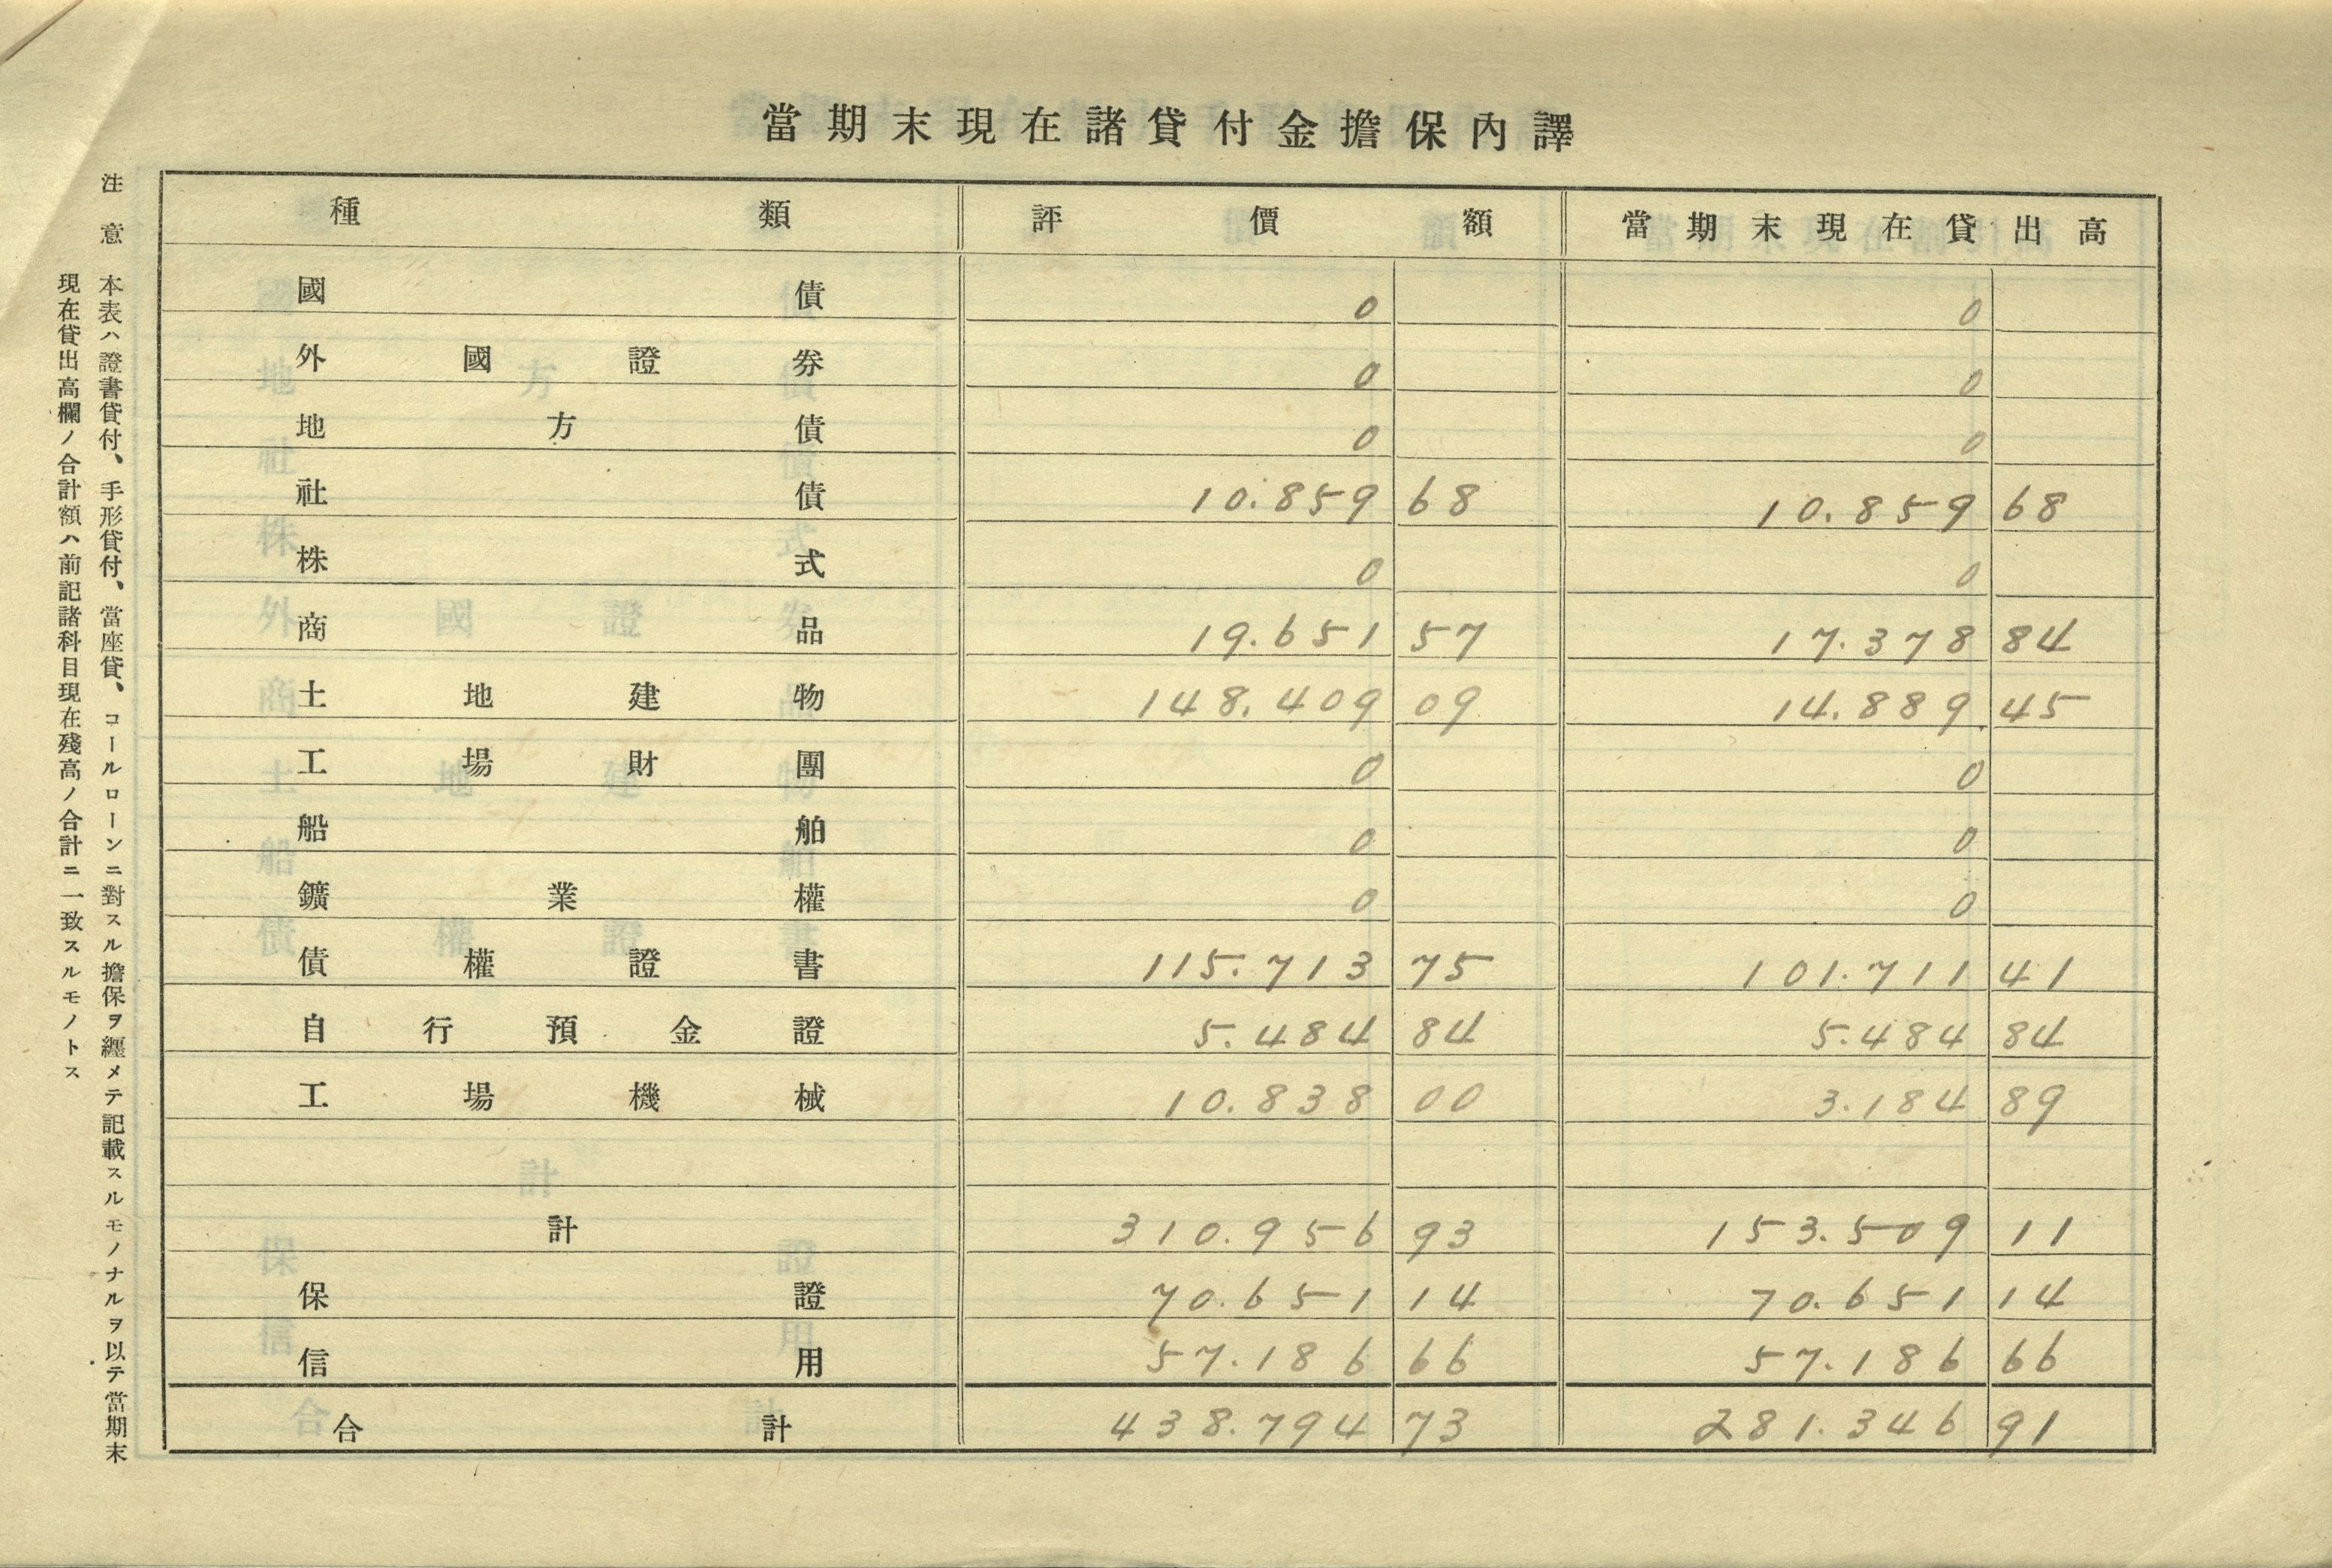 當期末現在諸貸付金擔保內譯
種類 評價額 當期末現在貸出高
國債 0 0
外國證券 0 0
地方債 0 0
社債 10.859 68 10.859 68
株式 0 0
商品 19.651 57 17.378 84
土地建物 148.409 09 14.889 45
工場財團 0 0
船舶 0 0
鑛業權 0 0
債權證書 115.713 75 101.711 41
自行預金證 5.484 84 5.484 84
工場機械 10.838 00 3.184 89
計 310.956 93 153.509 11
保證 70.651 14 70.651 14
信用 57.186 66 57.186 66
合計 438.794 73 281.346 91
注意 本表ハ證書貸付、手形貸付、當座貸、コールローンニ對スル擔保ヲ纒メテ記載スルモノナルヲ以テ當期末
現在貸出高欄ノ合計額ハ前記諸科目現在殘高ノ合計ニ一致スルモノトス